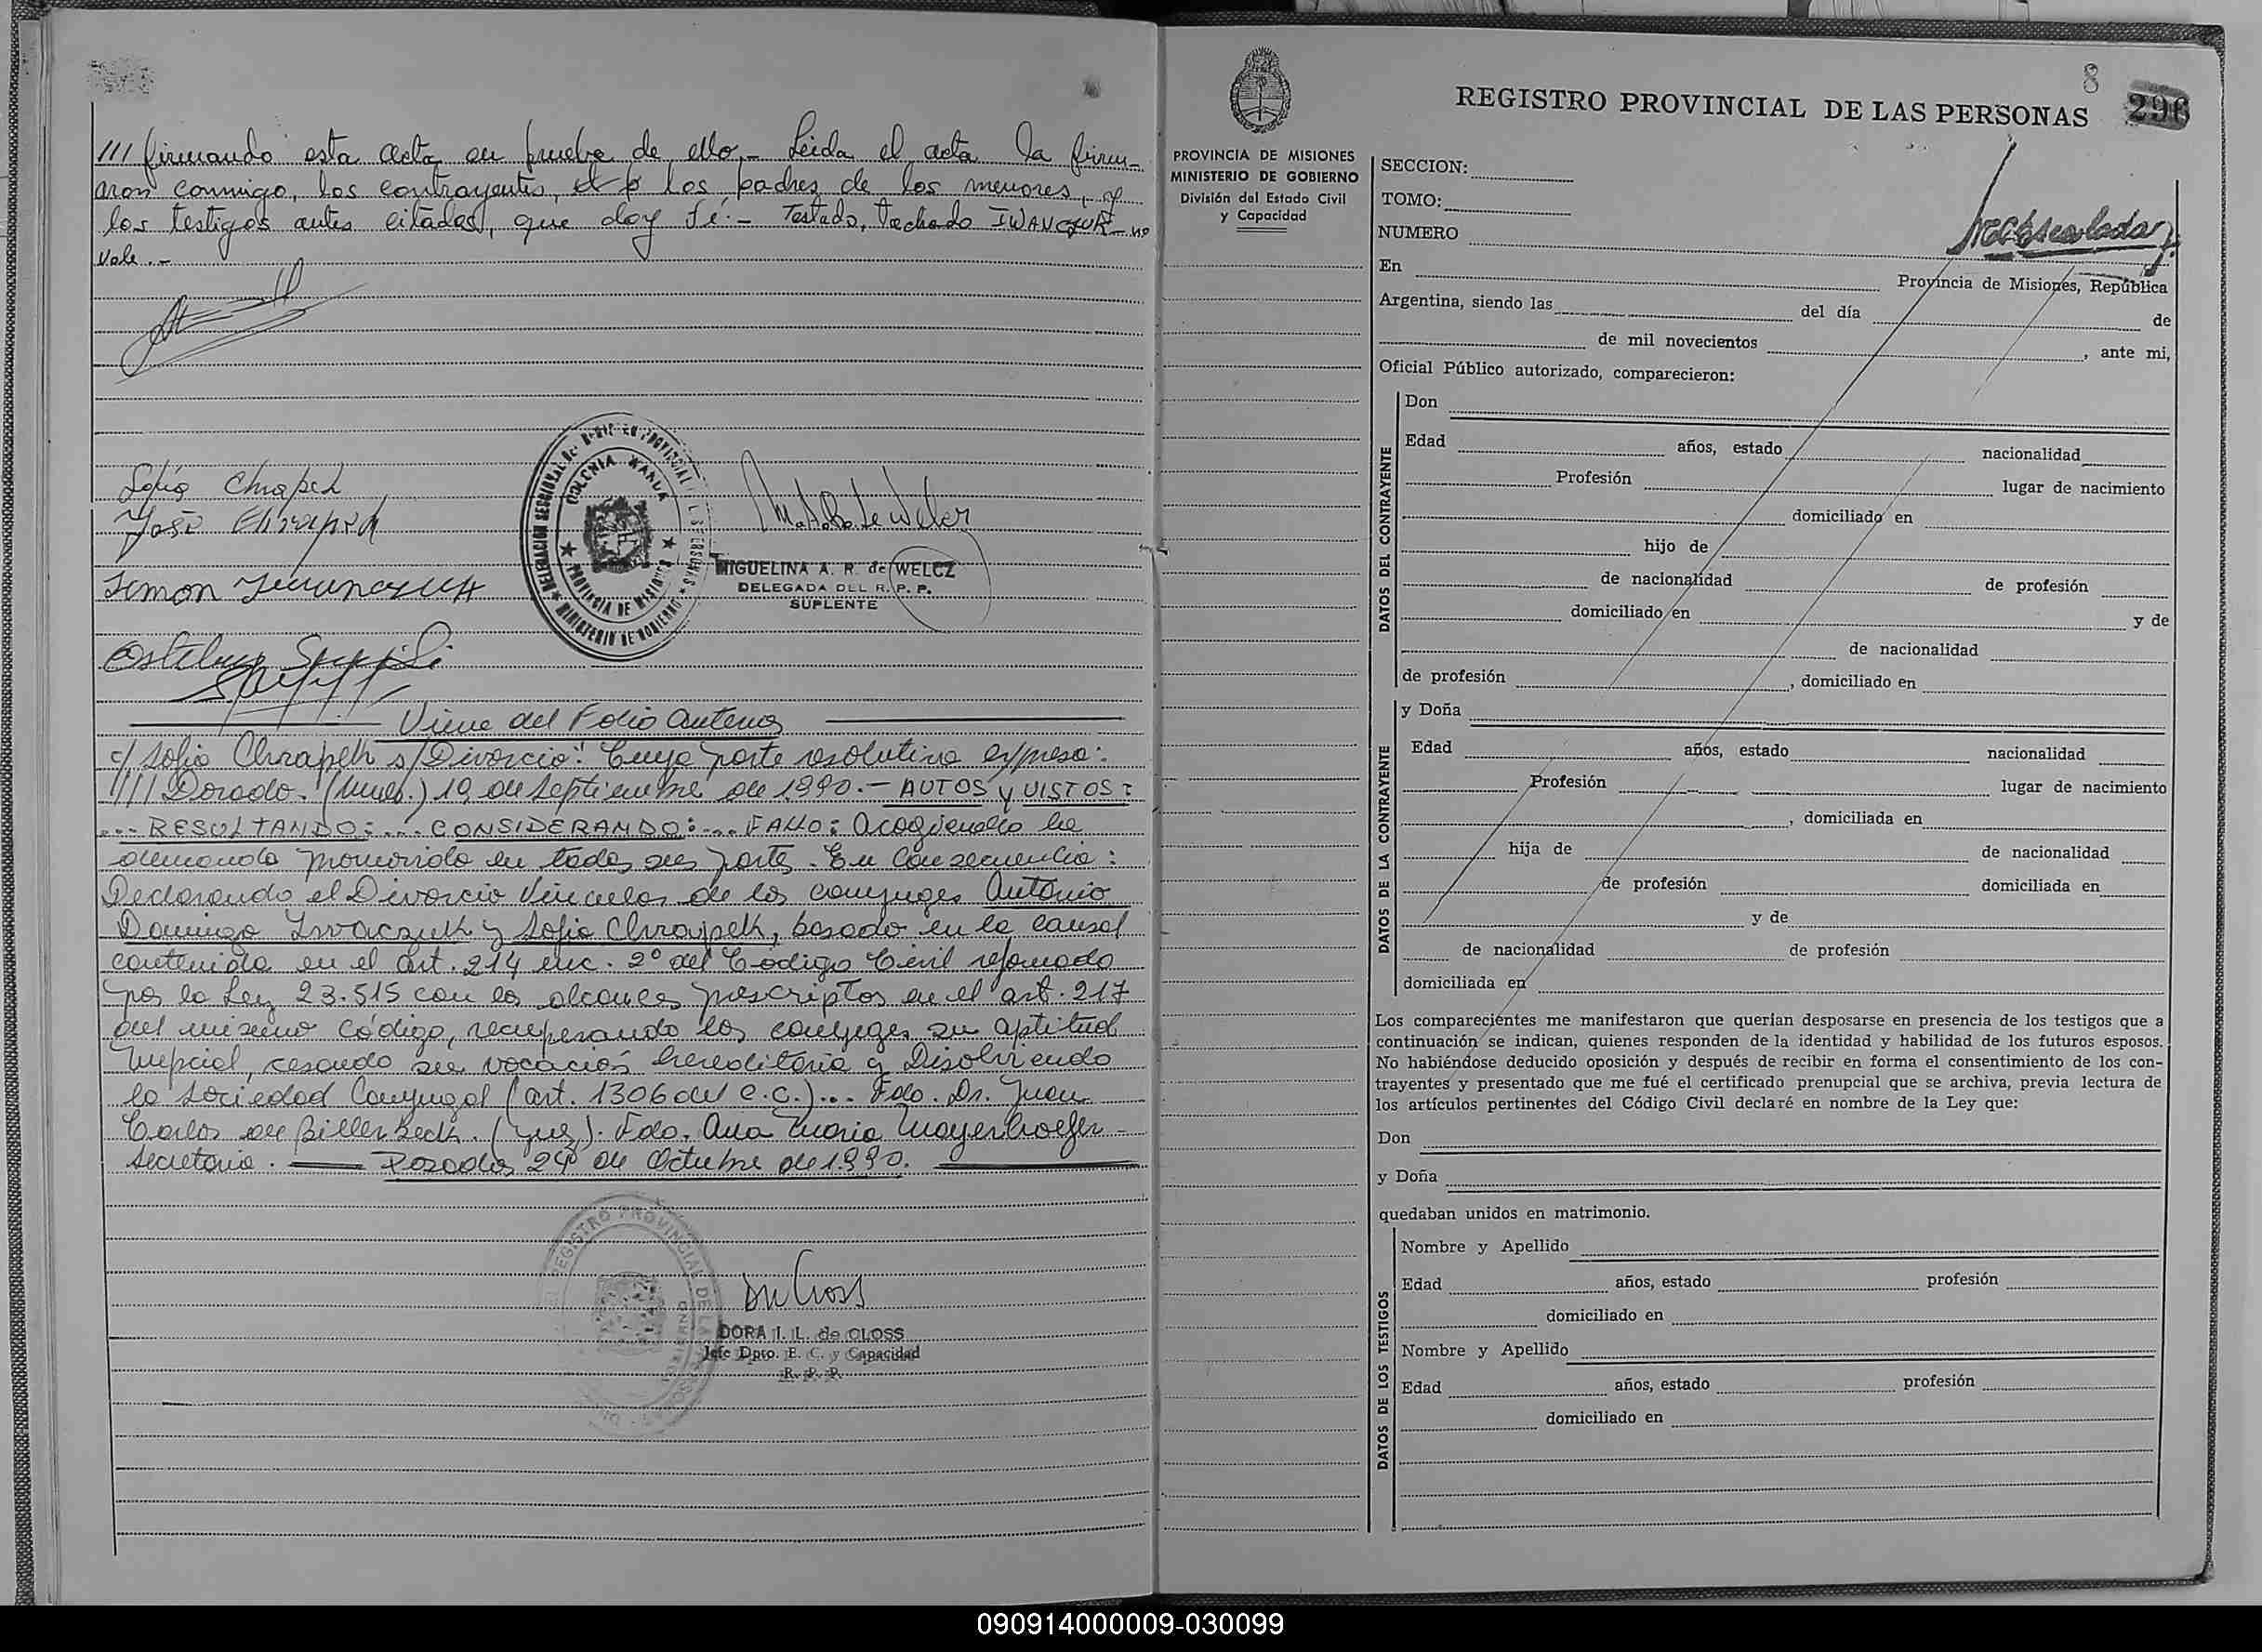 /// firmando esta acta en prueba de ello.- Leida el acta la firm-
aron conmigo, los contrayentes, los padres de los menores, y
los testigos antes citados, que doy fé.- Testado, tachado IWANCZUK- no
vale.-
Sofía Chrapek
José Chrapek
Simon
MINISTERIO DE GOBIERNO
COLONIA WANDA
PROVINCIA DE MISIONES
MIGUELINA A. R. de WELCZ
DELEGADA DEL R. P. P.
SUPLENTE
Viene del Folio anterior
c/ Sofia Chrapek s/ Divorcio". Cuya parte resolutiva expresa:
"//// Dorado. (Mnes.) 19 de Septiembre de 1990.- AUTOS y VISTOS:
...RESULTANDO:... CONSIDERANDO:... FALLO: Acogiendo la
demanda promovida en todas sus partes. En Consecuencia:
Declarando el Divorcio Vincular de los conyuges Antonio
Domingo Iwaczuk y Sofia Chrapek, basado en la causal
contenida en el art. 214 inc. 2º del Código Civil reformado
por la Ley 23.515 con los alcances prescriptos en el art. 217
del mismo Código, recuperando los conyuges su aptitud
Nupcial, cesando su vocación hereditaria y Disolviendo
la Sociedad Conyugal (art. 1306 del C.C.)... Fdo. Dr. Juan
Carlos de Billerbeck. (Juez). Fdo. Ana Maria Mayerhoefer-
Secretaria. Posadas 24 de Octubre de 1.990.
REGISTRO PROVINCIAL DE LAS
DORA I. L. de CLOSS
Jefe Dpto. E. C. y Capacidad
R. P. P.
8
REGISTRO PROVINCIAL DE LAS PERSONAS 296
PROVINCIA DE MISIONES
MINISTERIO DE GOBIERNO
División del Estado Civil
y Capacidad
SECCION:
TOMO:
NUMERO
En Provincia de Misiones, República
Argentina, siendo las del día de
de mil novecientos , ante mi,
Oficial Público autorizado, comparecieron:
DATOS DEL CONTRAYENTE
Don
Edad años, estado nacionalidad
Profesión lugar de nacimiento
domiciliado en
hijo de
de nacionalidad de profesión
domiciliado en y de
de nacionalidad
de profesión , domiciliado en
DATOS DE LA CONTRAYENTE
y Doña
Edad años, estado nacionalidad
Profesión lugar de nacimiento
, domiciliada en
hija de de nacionalidad
de profesión domiciliada en
y de
de nacionalidad de profesión
domiciliada en
Los comparecientes me manifestaron que querían desposarse en presencia de los testigos que a
continuación se indican, quienes responden de la identidad y habilidad de los futuros esposos.
No habiéndose deducido oposición y después de recibir en forma el consentimiento de los con-
trayentes y presentado que me fué el certificado prenupcial que se archiva, previa lectura de
los artículos pertinentes del Código Civil declaré en nombre de la Ley que:
Don
y Doña
quedaban unidos en matrimonio.
DATOS DE LOS TESTIGOS
Nombre y Apellido
Edad años, estado profesión
domiciliado en
Nombre y Apellido
Edad años, estado profesión
domiciliado en
090914000009-030099